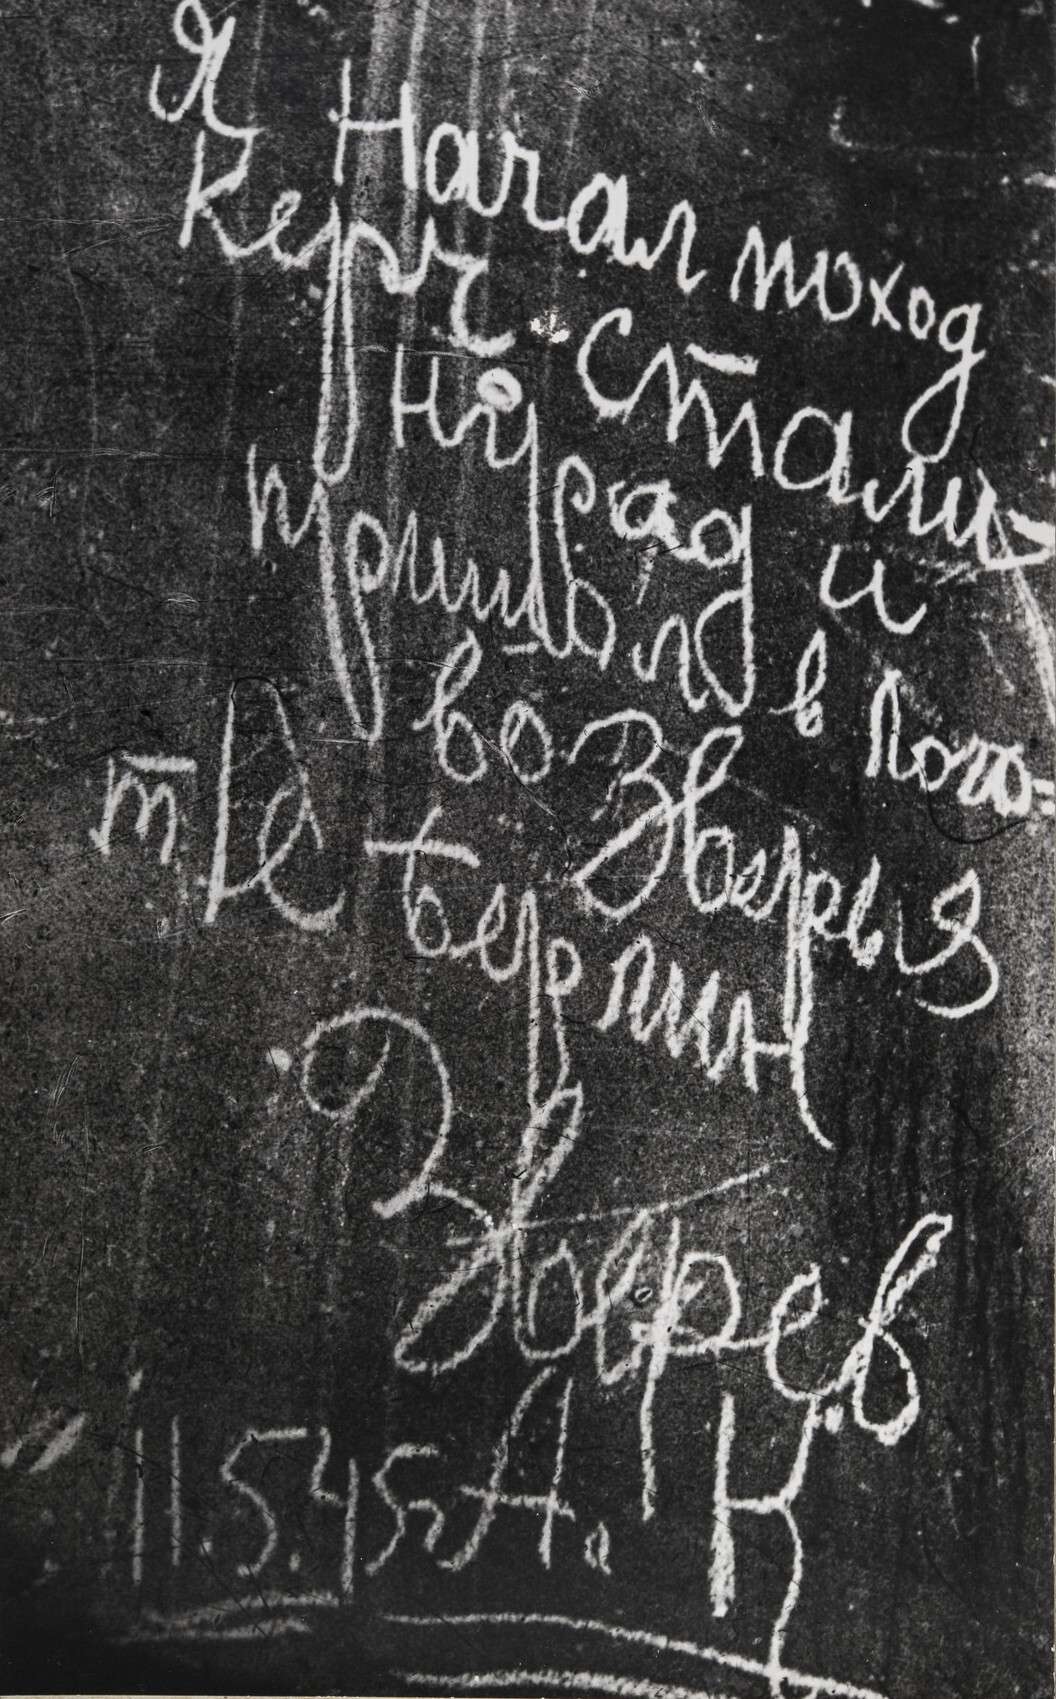 Я Начал поход
Керч. Стали-
Нград и
пришол в лого=
во Зверья
т/е Берлин
Зверев
11 5.45г А. К